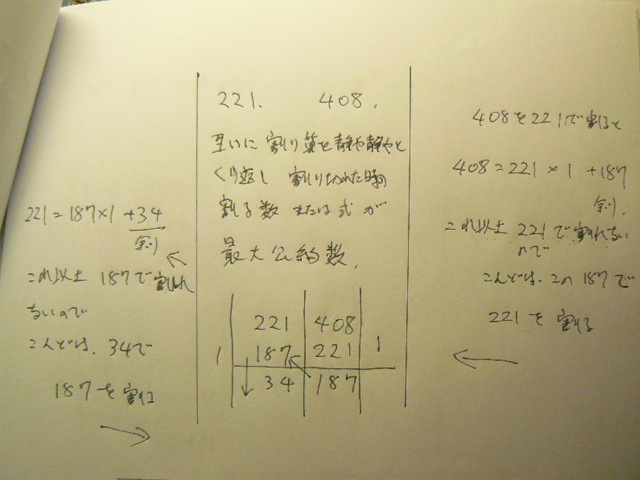 221.　408.
互いに 割り算を静や静やと
くり返し 割り切れた時の
割る数 または式が
最大公約数.
221 408
1 187 221 1
34 187
408を221で割ると
408=221×1+187
余り.
これ以上 221で割れない
ので
こんどは、この187で
221を割る
←
221=187×1+34
余り
これ以上 187で割れ
ないので
こんどは、34で
187を割る
→